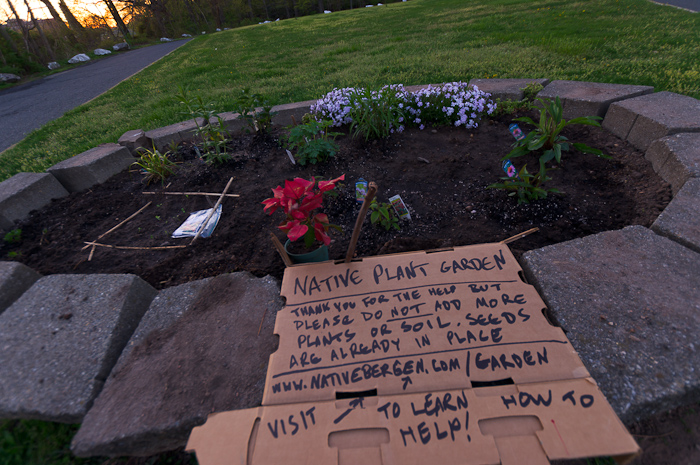 NATIVE PLANT GARDEN
THANK YOU FOR THE HELP BUT
PLEASE DO NOT ADD MORE
PLANTS OR SOIL. SEEDS
ARE ALREADY IN PLACE
WWW.NATIVEBERGEN.COM/GARDEN
VISIT TO LEARN HOW TO
HELP!